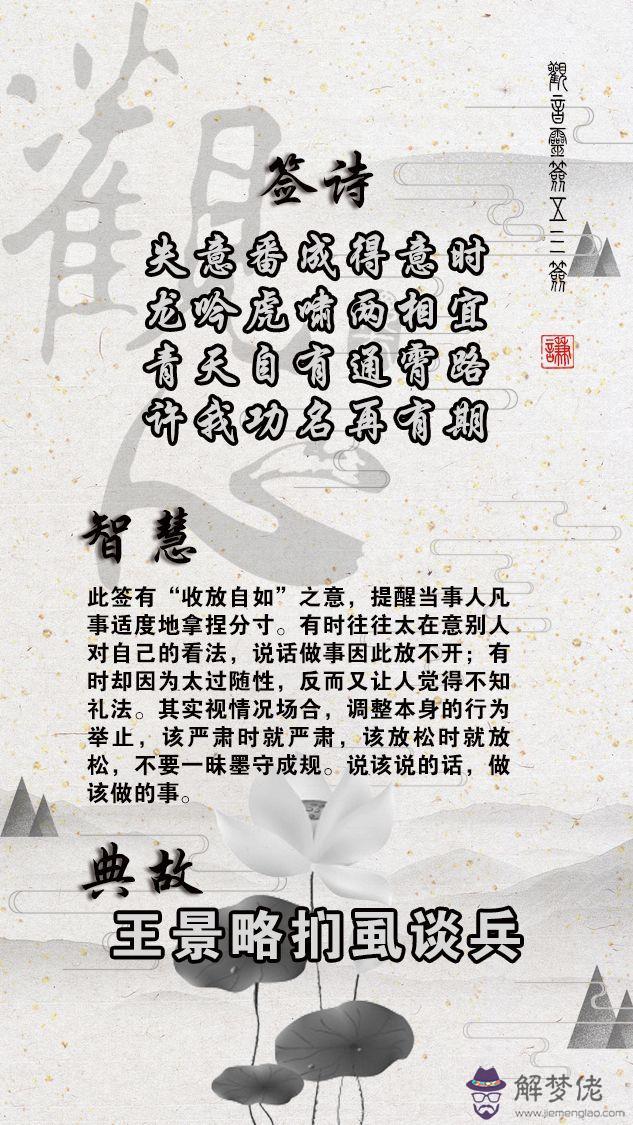 觀
觀音靈簽五三簽
謙
签诗
失意番成得意时
龙吟虎啸两相宜
青天自有通霄路
许我功名再有期
智慧
此签有“收放自如”之意，提醒当事人凡
事适度地拿捏分寸。有时往往太在意别人
对自己的看法，说话做事因此放不开；有
时却因为太过随性，反而又让人觉得不知
礼法。其实视情况场合，调整本身的行为
举止，该严肃时就严肃，该放松时就放
松，不要一昧墨守成规。说该说的话，做
该做的事。
典故
王景略扪虱谈兵
解梦佬
www.jiemenglao.com